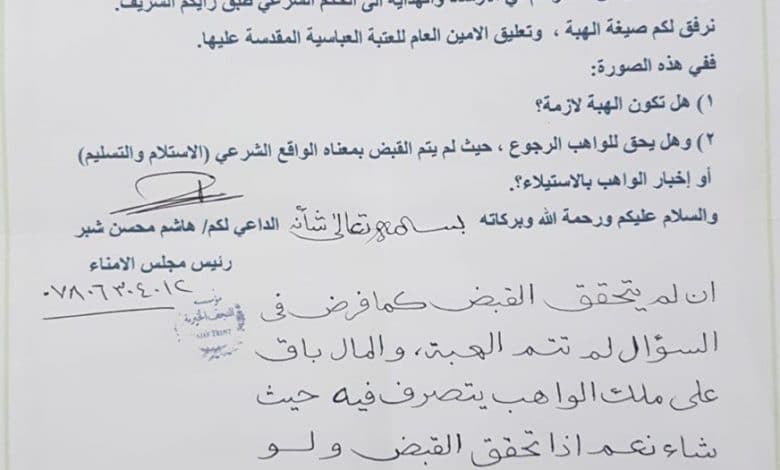 الارشاد والهداية الى الحكم الشرعي طبق رأيكم الشريف.
نرفق لكم صيغة الهبة ، وتعليق الامين العام للعتبة العباسية المقدسة عليها.
ففي هذه الصورة:
١) هل تكون الهبة لازمة؟
٢) وهل يحق للواهب الرجوع ، حيث لم يتم القبض بمعناه الواقع الشرعي (الاستلام والتسليم)
أو إخبار الواهب بالاستيلاء؟.
والسلام عليكم ورحمة الله وبركاته
بسمه تعالى شأنه
الداعي لكم/ هاشم محسن شبر
رئيس مجلس الامناء
٠٧٨٠٦٣٠٤٠١٢
مؤسسة
النجف الخيرية
ان لم يتحقق القبض كما فرض في
السؤال لم تتم الهبة، والمال باق
على ملك الواهب يتصرف فيه حيث
شاء نعم اذا تحقق القبض ولو